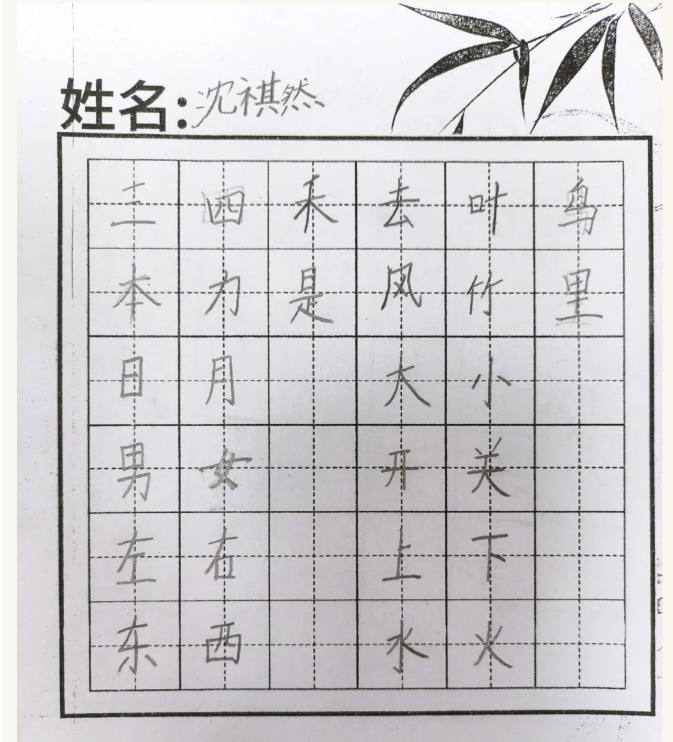 姓名:沈祺然
三四来去叶鸟
本力是风竹里
日月大小
男女开关
左右上下
东西水火